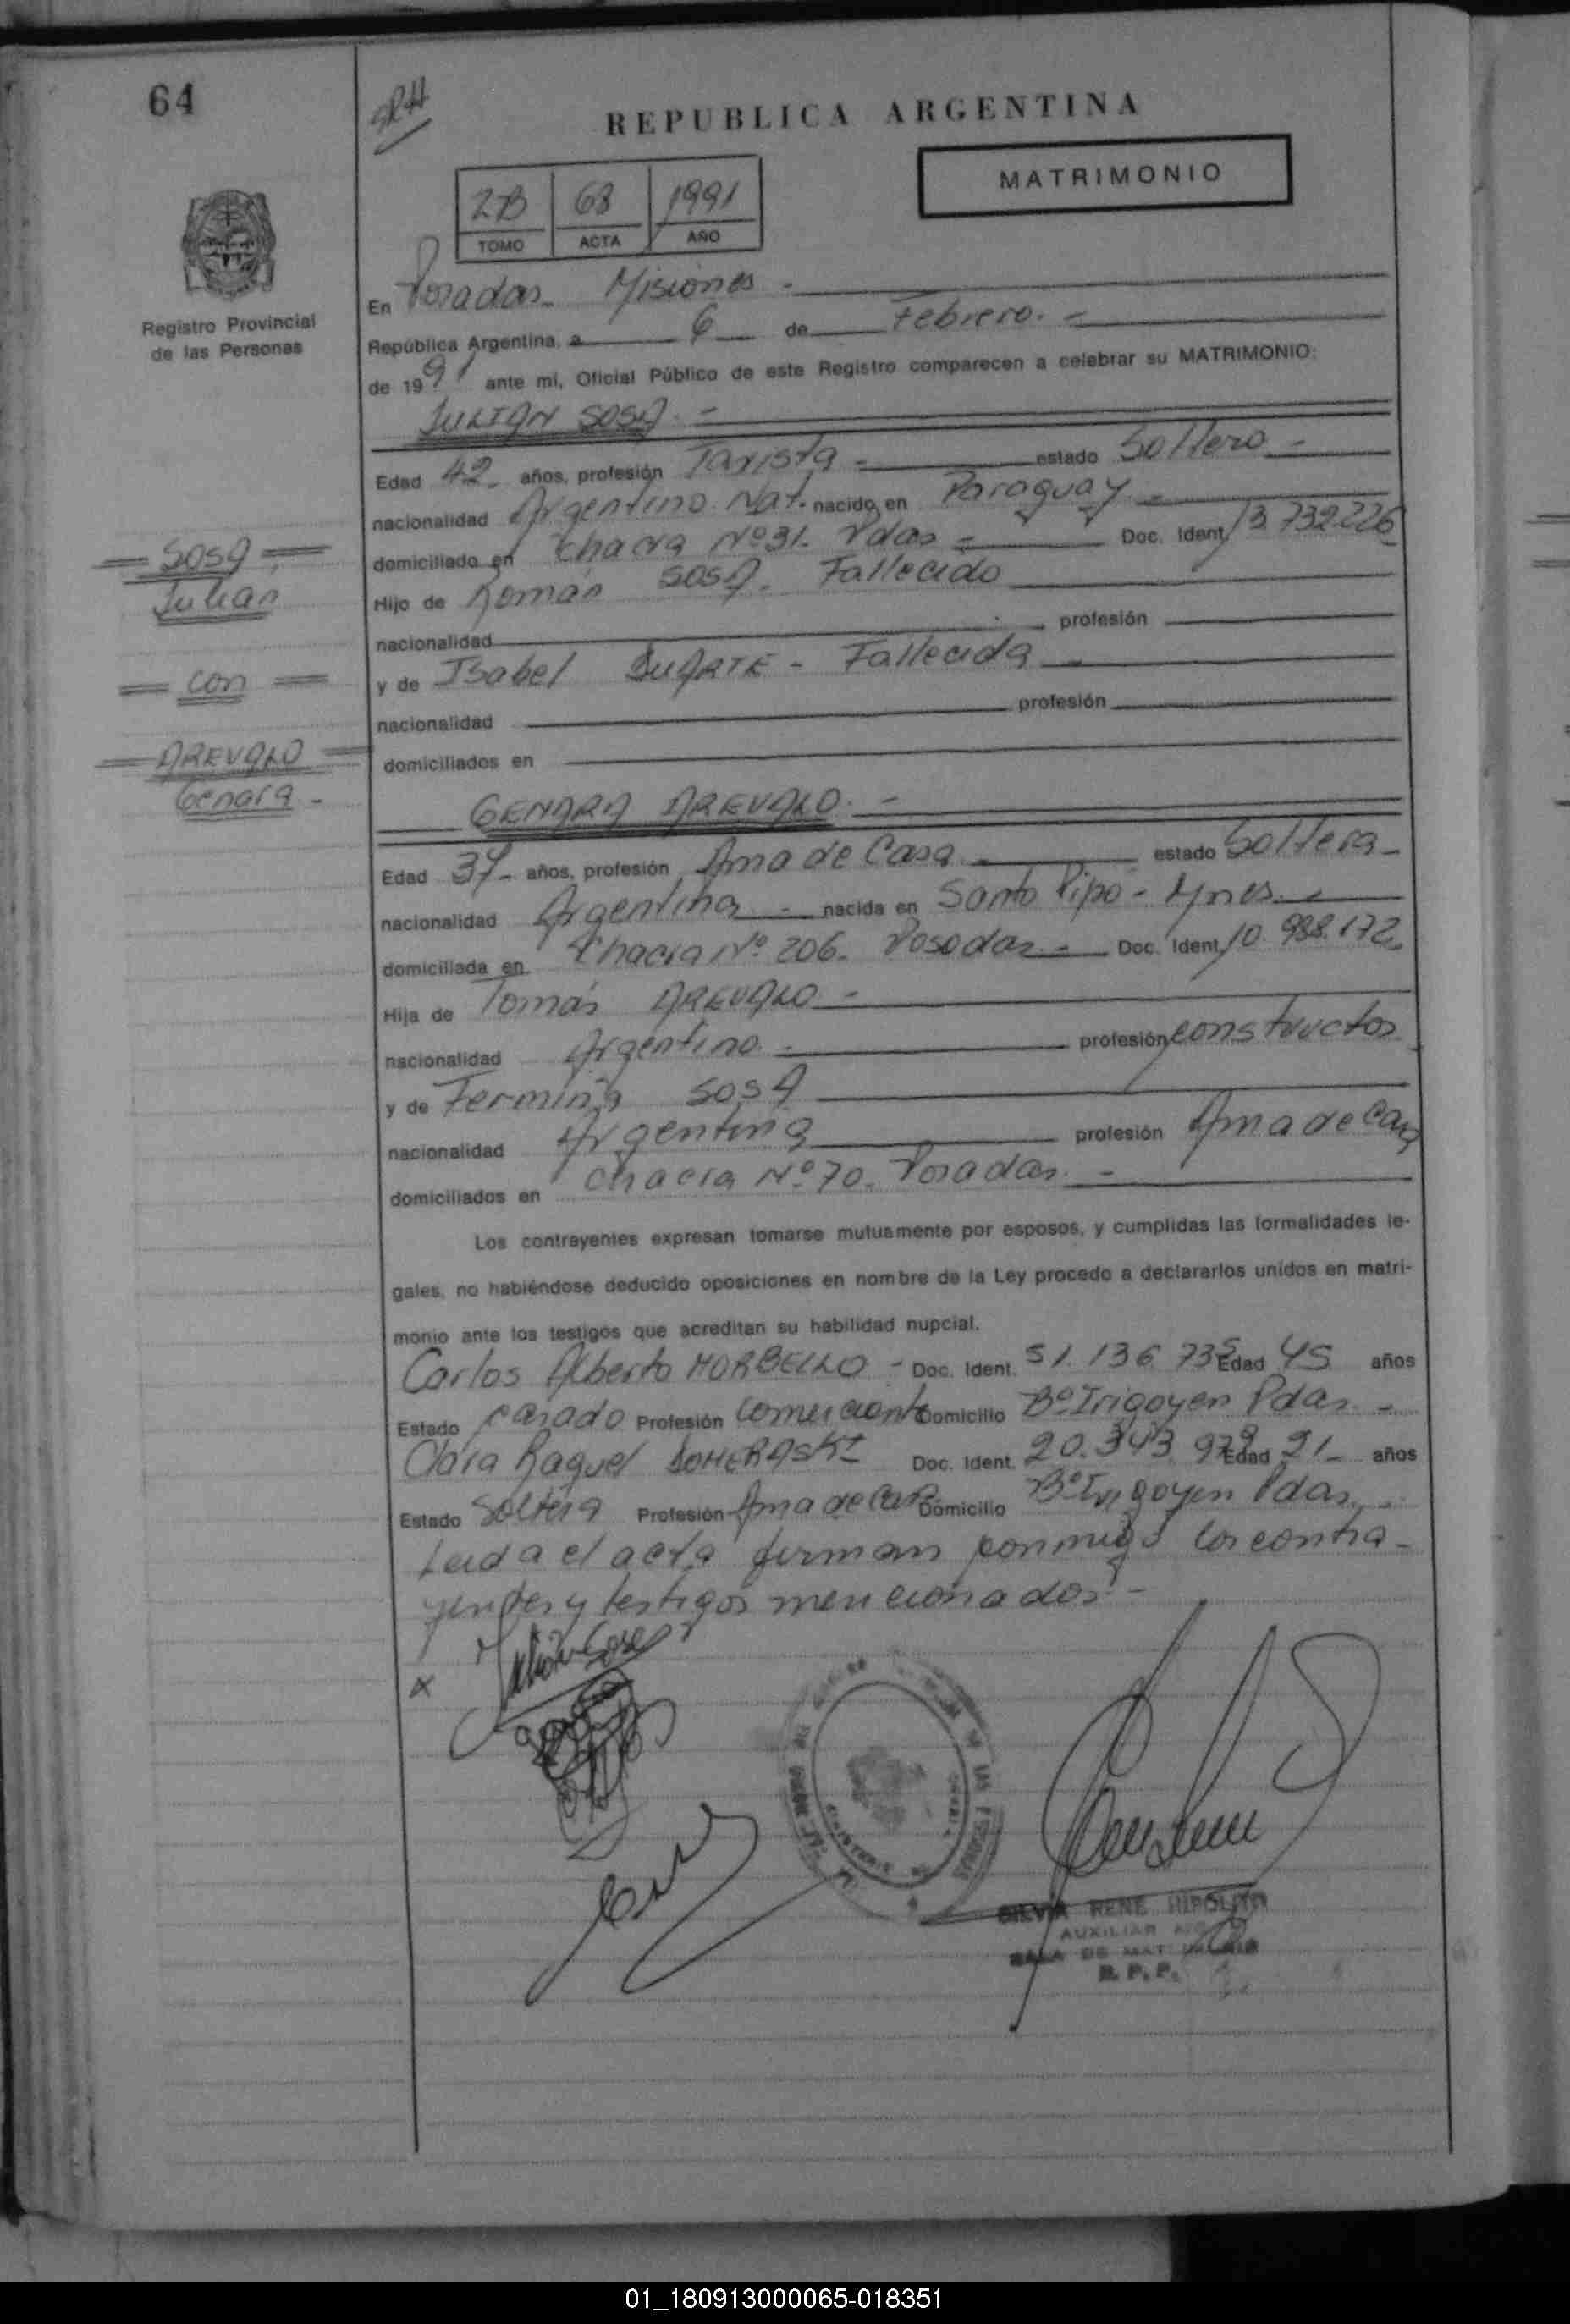 64
SRH
REPUBLICA ARGENTINA
MATRIMONIO
2B 68 1991
TOMO ACTA AÑO
Registro Provincial
de las Personas
En Posadas Misiones -
República Argentina, a 6 de Febrero. -
de 1991 ante mi, Oficial Público de este Registro comparecen a celebrar su MATRIMONIO:
JULIAN SOSA. -
Edad 42 años, profesión Taxista - estado Soltero -
nacionalidad Argentino Nat. nacido en Paraguay -
domiciliado en Chacra Nº 31. Pdas - Doc. Ident. 13.732.226
Hijo de Román SOSA. Fallecido
nacionalidad profesión
y de Isabel DUARTE - Fallecida
nacionalidad profesión
domiciliados en
Sosa
Julián
con
AREVALO
Genara -
GENARA AREVALO. -
Edad 37 - años, profesión Ama de Casa estado Soltera -
nacionalidad Argentina - nacida en Santo Pipo - Mnes. -
domiciliada en Chacra Nº 206. Posadas - Doc. Ident. 10.988.172
Hija de Tomás AREVALO -
nacionalidad Argentino - profesión constructor
y de Fermina SOSA
nacionalidad Argentina profesión Ama de Casa
domiciliados en Chacra Nº 70. Posadas. -
Los contrayentes expresan tomarse mutuamente por esposos, y cumplidas las formalidades le-
gales, no habiéndose deducido oposiciones en nombre de la Ley procedo a declararlos unidos en matri-
monio ante los testigos que acreditan su habilidad nupcial.
Carlos Alberto MORBELLO - Doc. Ident. Edad 45 años
Estado Casado Profesión Comerciante Domicilio Bº Irigoyen Pdas. -
Clara Raquel Doc. Ident. 20.343.979 Edad 21 - años
Estado Soltera Profesión Ama de Casa Domicilio Bº Irigoyen Pdas.
Leida el acta firman conmigo los contra-
yentes y testigos mencionados. -
x Julián Sosa
SILVIA RENE HIPOLITO
AUXILIAR
SALA DE
R. P. P.
01_180913000065-018351